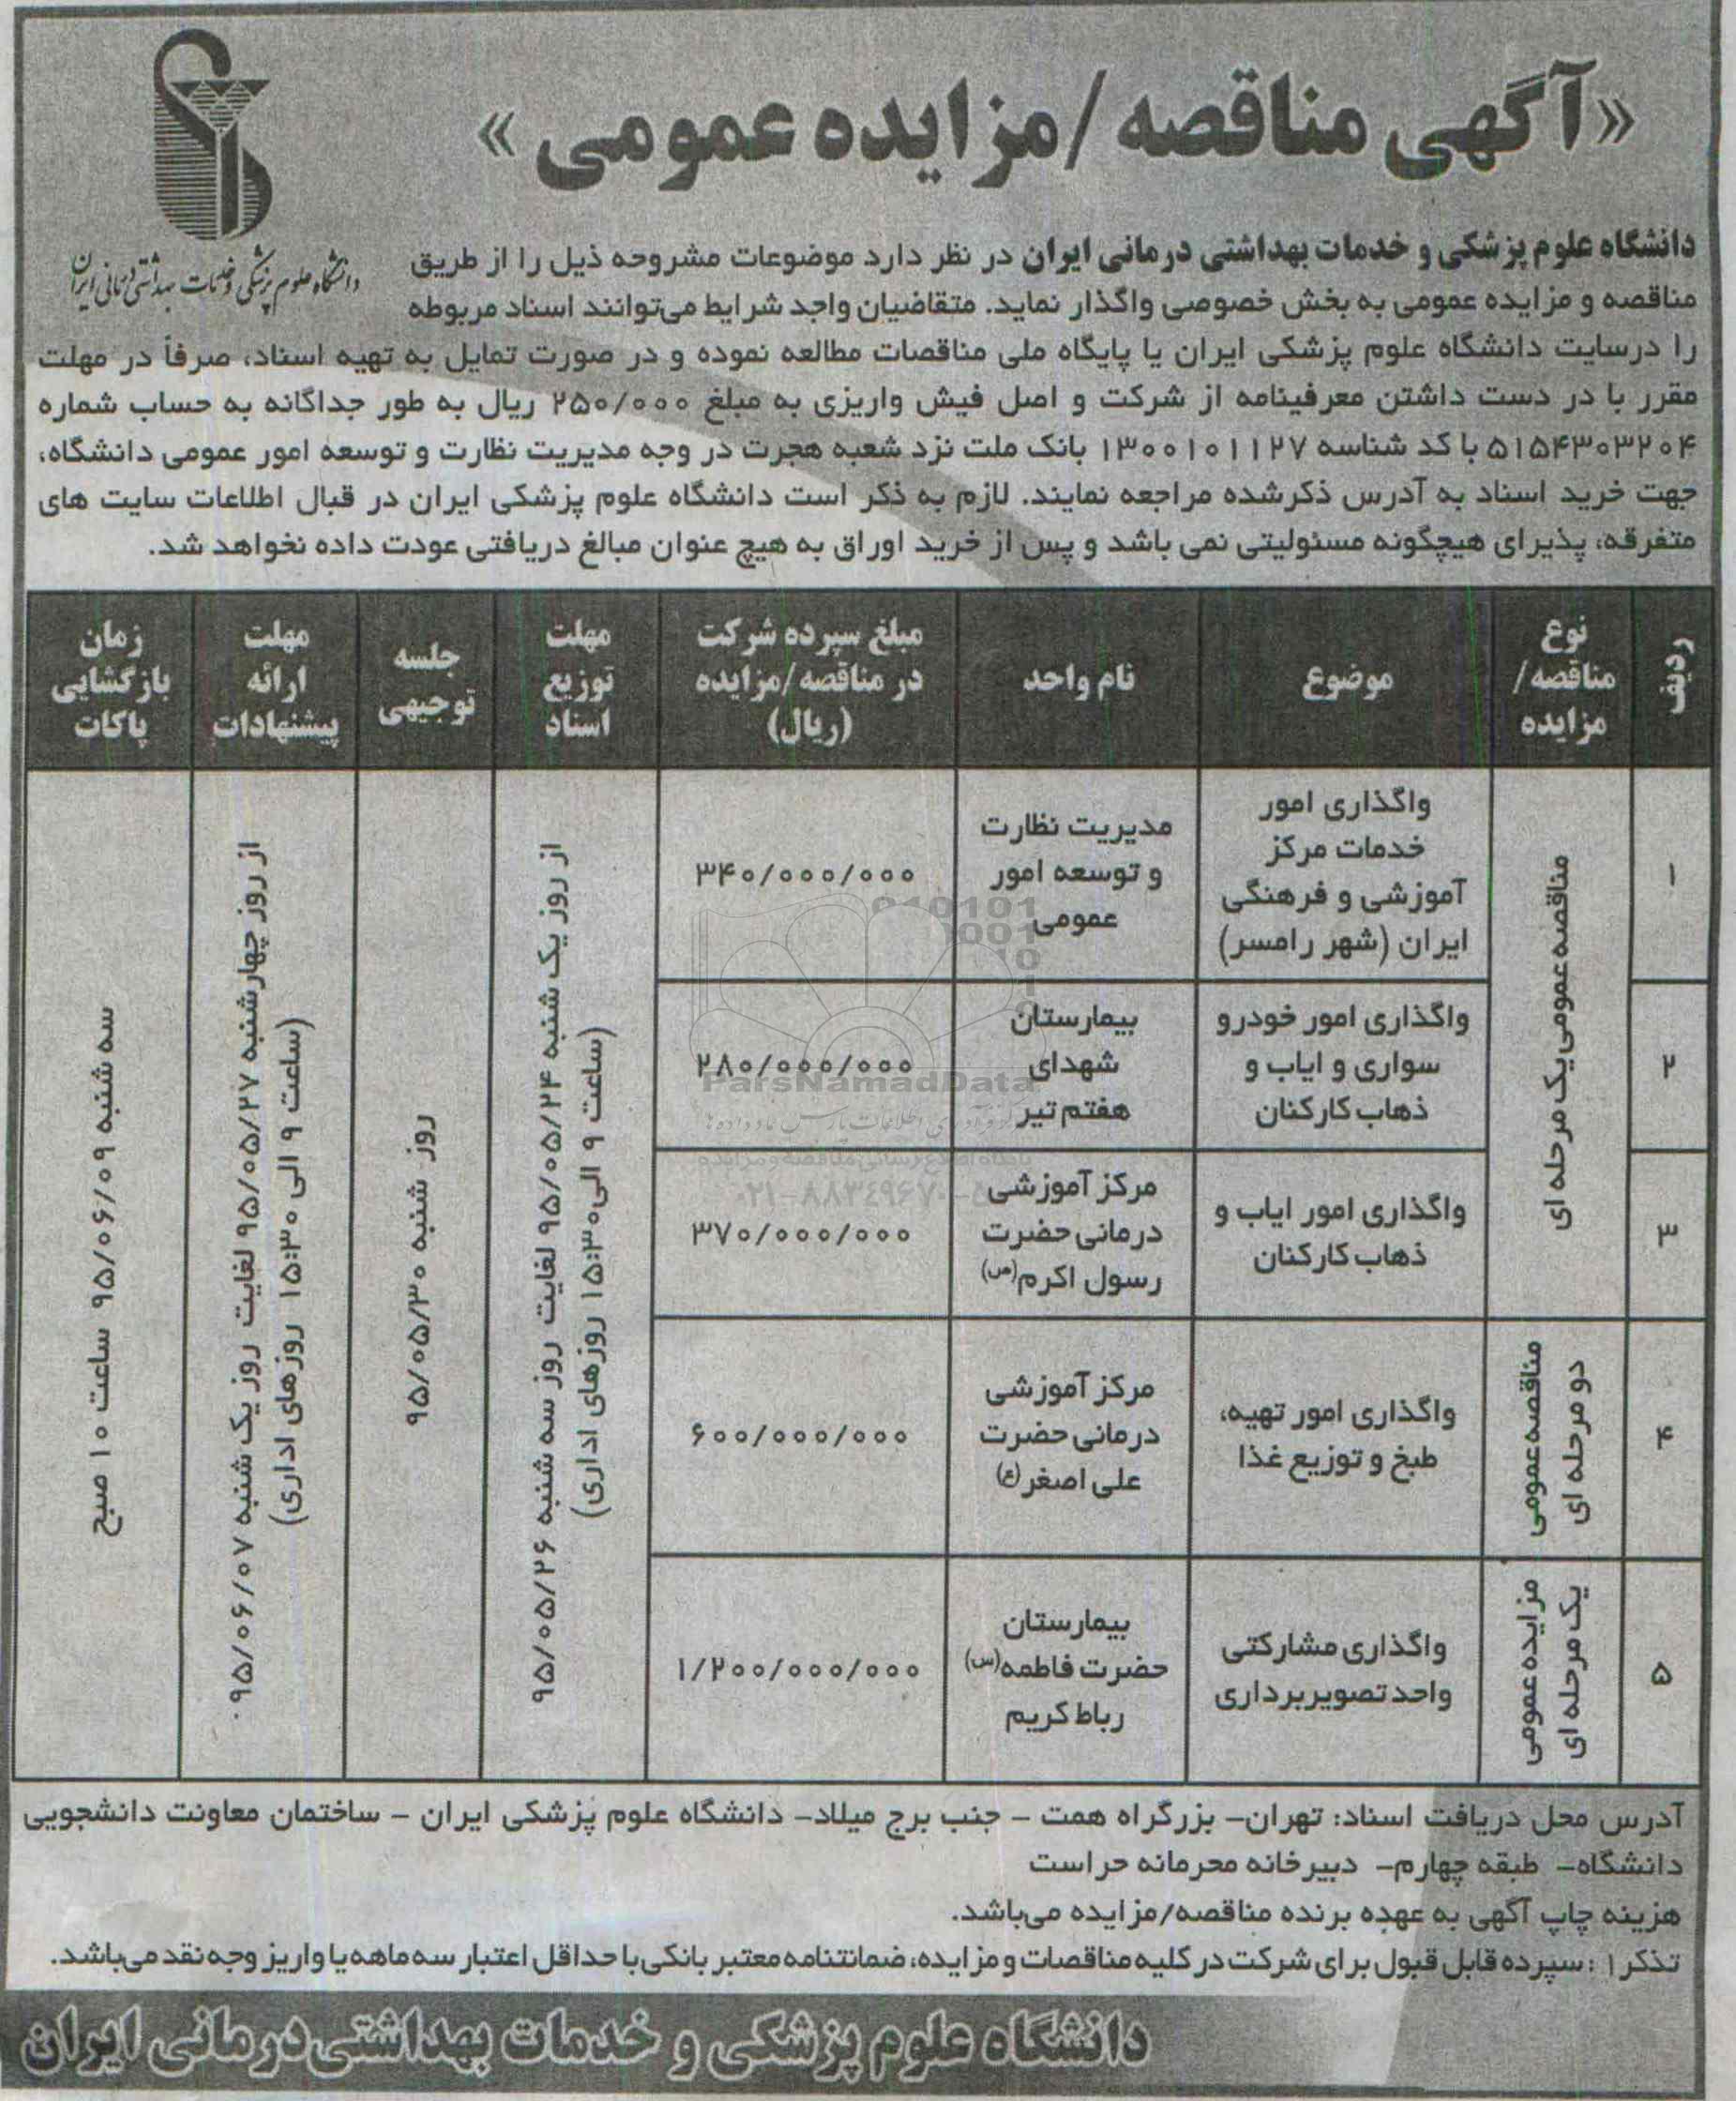 «آگهی مناقصه/مزایده عمومی»
دانشگاه علوم پزشکی و خدمات بهداشتی درمانی ایران
دانشگاه علوم پزشکی و خدمات بهداشتی درمانی ایران در نظر دارد موضوعات مشروحه ذیل را از طریق
مناقصه و مزایده عمومی به بخش خصوصی واگذار نماید. متقاضیان واجد شرایط می‌توانند اسناد مربوطه
را درسایت دانشگاه علوم پزشکی ایران یا پایگاه ملی مناقصات مطالعه نموده و در صورت تمایل به تهیه اسناد، صرفاً در مهلت
مقرر با در دست داشتن معرفینامه از شرکت و اصل فیش واریزی به مبلغ ۲۵۰/۰۰۰ ریال به طور جداگانه به حساب شماره
۵۱۵۴۳۰۳۲۰۴ با کد شناسه ۱۳۰۰۱۰۱۱۲۷ بانک ملت نزد شعبه هجرت در وجه مدیریت نظارت و توسعه امور عمومی دانشگاه،
جهت خرید اسناد به آدرس ذکرشده مراجعه نمایند. لازم به ذکر است دانشگاه علوم پزشکی ایران در قبال اطلاعات سایت های
متفرقه، پذیرای هیچگونه مسئولیتی نمی باشد و پس از خرید اوراق به هیچ عنوان مبالغ دریافتی عودت داده نخواهد شد.
ردیف
نوع
مناقصه/
مزایده
موضوع
نام واحد
مبلغ سپرده شرکت
در مناقصه/مزایده
(ریال)
مهلت
توزیع
اسناد
جلسه
توجیهی
مهلت
ارائه
پیشنهادات
زمان
بازگشایی
پاکات
۱
مناقصه عمومی یک مرحله ای
واگذاری امور
خدمات مرکز
آموزشی و فرهنگی
ایران (شهر رامسر)
مدیریت نظارت
و توسعه امور
عمومی
۳۴۰/۰۰۰/۰۰۰
از روز یک شنبه ۹۵/۰۵/۲۴ لغایت روز سه شنبه ۹۵/۰۵/۲۶
(ساعت ۹ الی ۱۵:۳۰ روزهای اداری)
روز شنبه ۹۵/۰۵/۳۰
از روز چهارشنبه ۹۵/۰۵/۲۷ لغایت روز یک شنبه ۹۵/۰۶/۰۷.
(ساعت ۹ الی ۱۵:۳۰ روزهای اداری)
سه شنبه ۹۵/۰۶/۰۹ ساعت ۱۰ صبح
۲
واگذاری امور خودرو
سواری و ایاب و
ذهاب کارکنان
بیمارستان
شهدای
هفتم تیر
۲۸۰/۰۰۰/۰۰۰
۳
واگذاری امور ایاب و
ذهاب کارکنان
مرکز آموزشی
درمانی حضرت
رسول اکرم(ص)
۳۷۰/۰۰۰/۰۰۰
۴
مناقصه عمومی
دو مرحله ای
واگذاری امور تهیه،
طبخ و توزیع غذا
مرکز آموزشی
درمانی حضرت
علی اصغر(ع)
۶۰۰/۰۰۰/۰۰۰
۵
مزایده عمومی
یک مرحله ای
واگذاری مشارکتی
واحد تصویربرداری
بیمارستان
حضرت فاطمه(س)
رباط کریم
۱/۲۰۰/۰۰۰/۰۰۰
ParsNamadData
آدرس محل دریافت اسناد: تهران- بزرگراه همت - جنب برج میلاد- دانشگاه علوم پزشکی ایران - ساختمان معاونت دانشجویی
دانشگاه- طبقه چهارم- دبیرخانه محرمانه حراست
هزینه چاپ آگهی به عهده برنده مناقصه/مزایده می‌باشد.
تذکر۱ : سپرده قابل قبول برای شرکت در کلیه مناقصات و مزایده، ضمانتنامه معتبر بانکی با حداقل اعتبار سه ماهه یا واریز وجه نقد می‌باشد.
دانشگاه علوم پزشکی و خدمات بهداشتی درمانی ایران